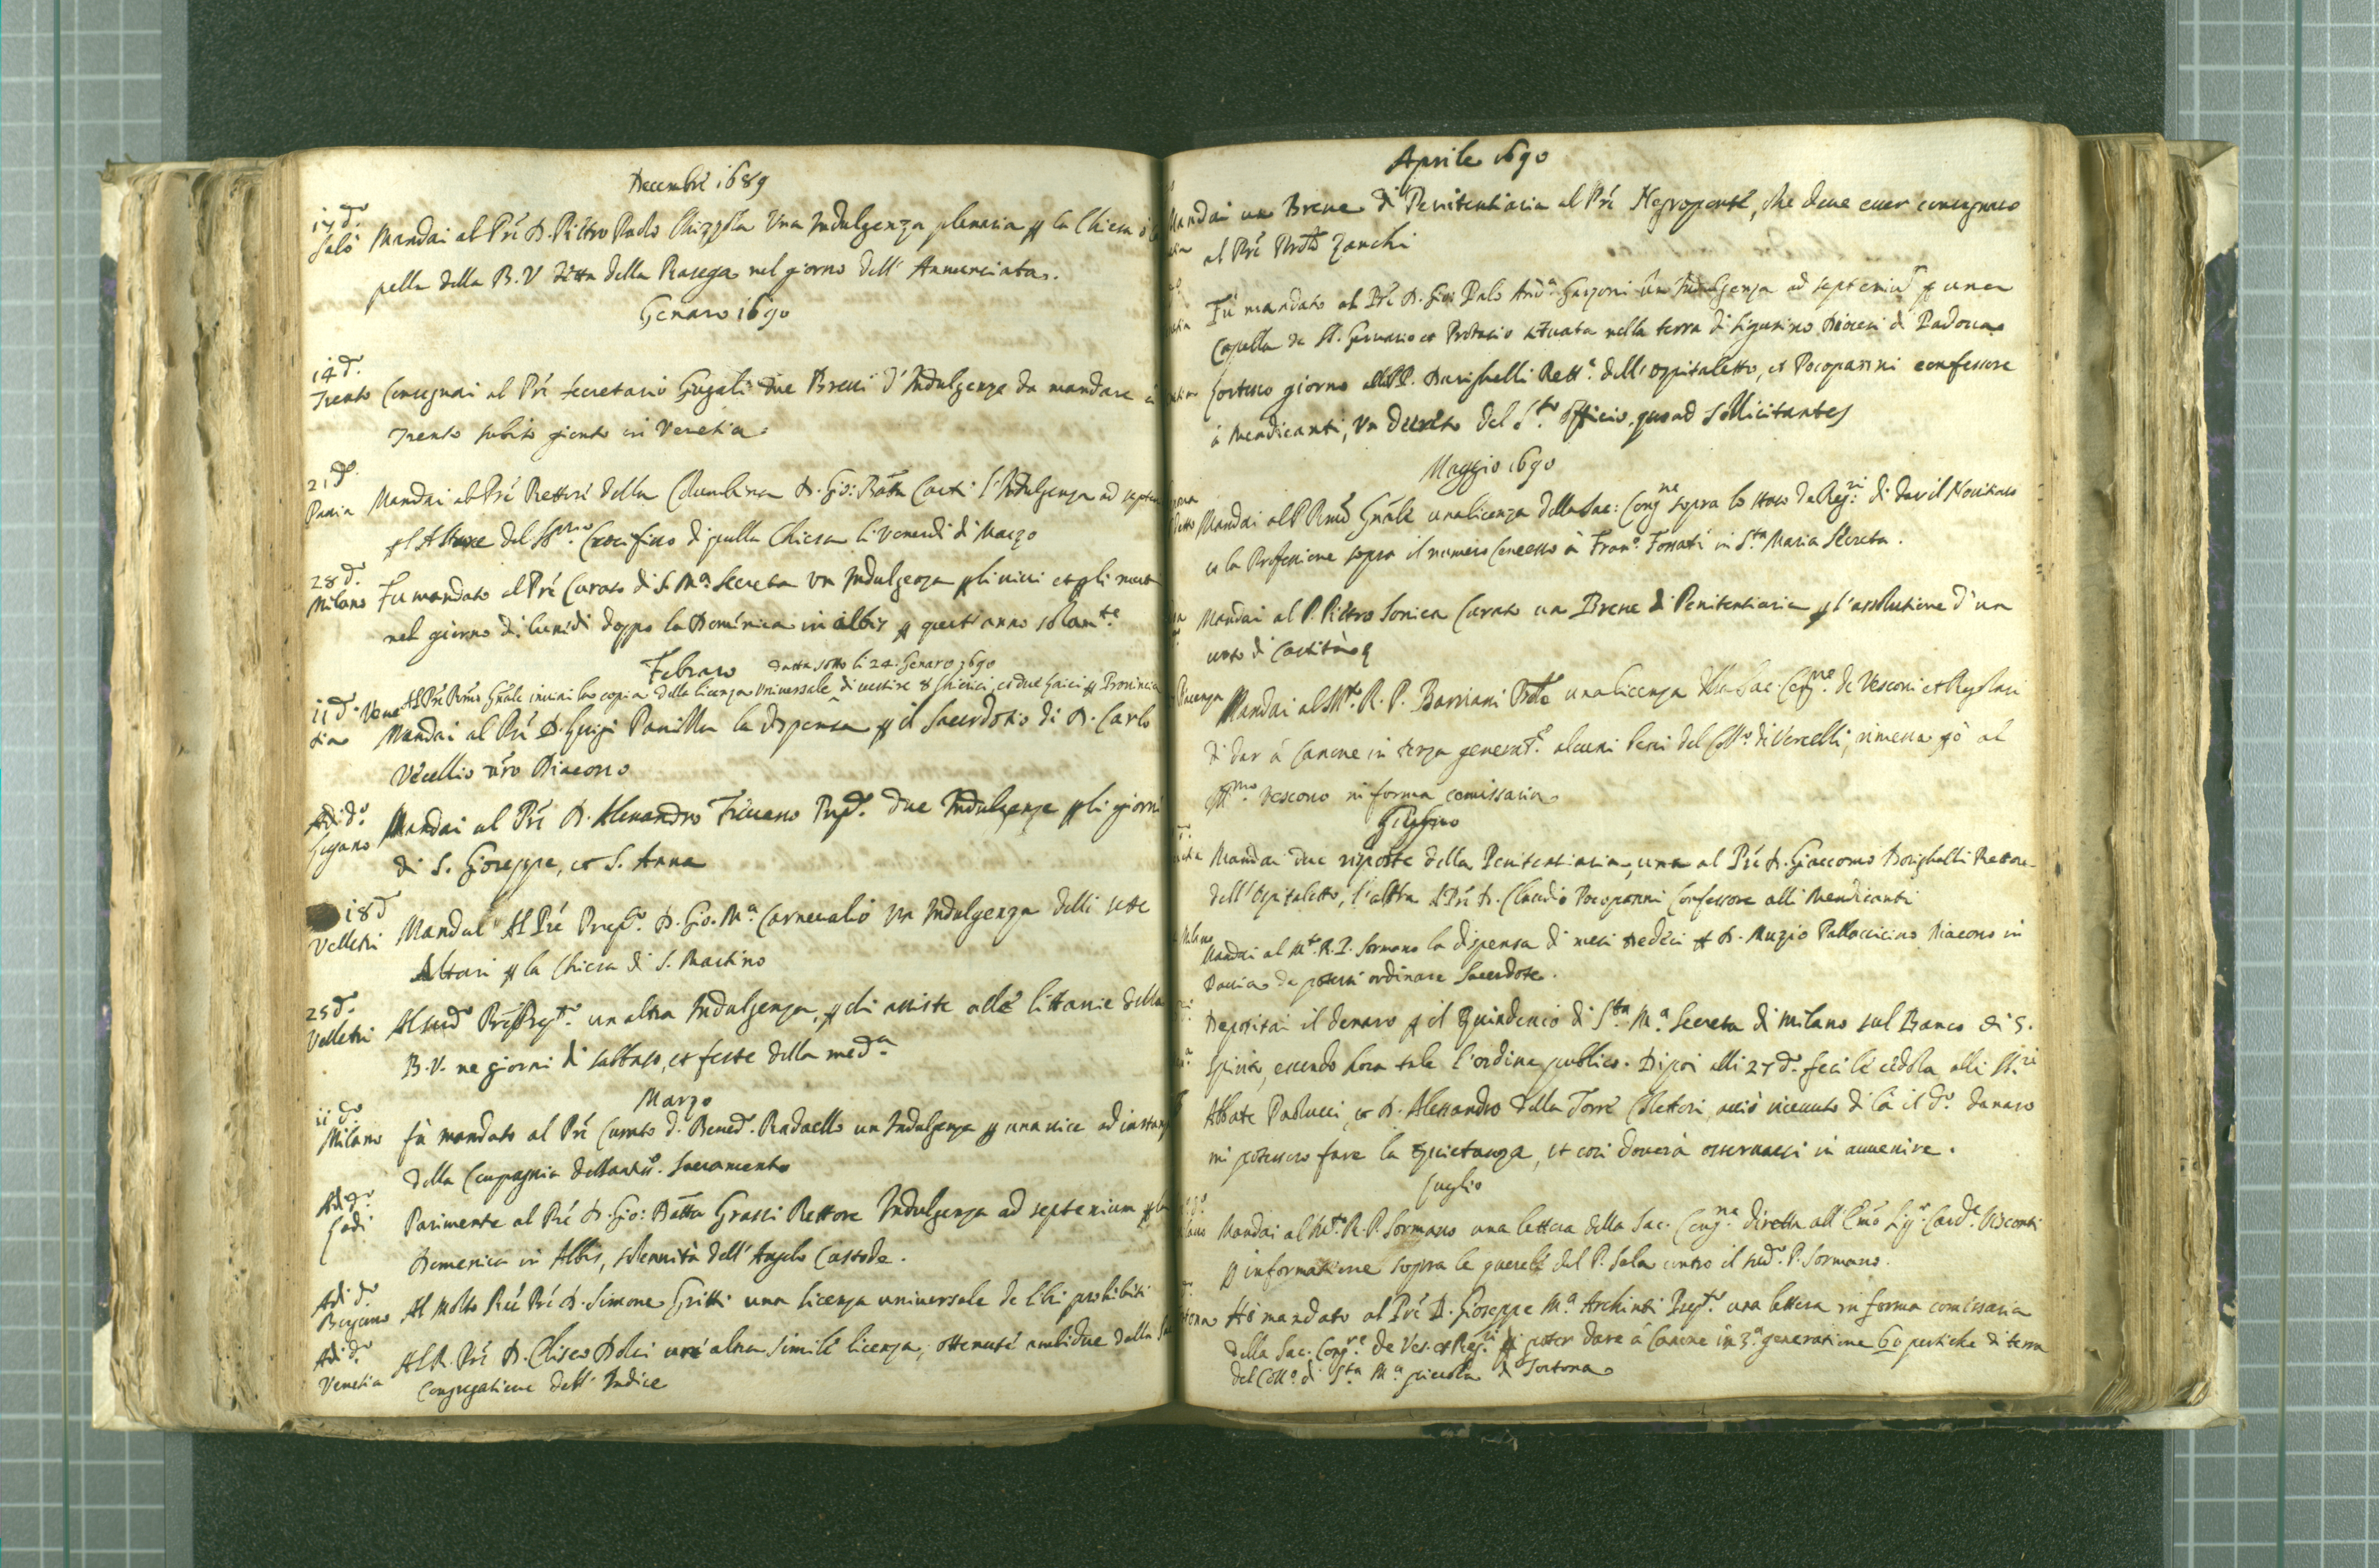 Decembre 1689
17 d.º Mandai al Pré D. Pietro Paolo Chizzola Una Indulgenza plenaria p la Chiesa
Salò
pella della B.V. detta della Rasega nel giorno dell' Annunciata.
Genaro 1690
14 d.º
Trento Consegnai al Pré secretario Gugali due Brevi d'Indulgenza da mandare à
Trento subito gionto in Venetia.
21 d.º
Pavia Mandai al Pré Rettore della Colombina D. Gio: Batta Conti l'Indulgenza ad
p l'Altare del SSmo Crocifisso di quella Chiesa li Venerdi di Marzo
28 d.º
Milano Fu mandato al Pré Curato di S. Mª Secreta Un Indulgenza p li vivi et p li
nel giorno di lunidi doppo la Domenica in albis p quest'anno solamte
Febraro data sotto li 24. Genaro 1690
Al Pré Rmo Gñale inviai la copia della licenza Universale di vestire 8 Chierici et due laici p Provincia
11 d.º Venetia Mandai al Pré D. Luigi Panilla la dispensa p il Sacerdotio di D. Carlo
Vecellio nro Diacono
Adi d.º
Lugano Mandai al Pré D. Alexandro Prepº. due Indulgenze p li giorni
di S. Gioseppe, et S. Anna
18 d.
Velletri Mandai Al Pré Prepº. D. Gio. Mª. Carnevalio Un Indulgenza delli sette
Altari p la Chiesa di S. Martino
25 d.º
Velletri Al sudº Pré Prepº. un altra Indulgenza, p chi assiste alle littanie della
B.V. ne giorni di sabbato, et feste della medª
Marzo
11 d.º
Milano fù mandato al Pré Curato D. Bened. Radaello un Indulgenza p una vice ad
della Compagnia del Santiss. Sacramento
Adi d.º
Lodi Parimente al Pré D. Gio: Batta Grassi Rettore Indulgenza ad septenium p la
Domenica in Albis, solennità dell'Angelo Custode.
Adi d.º
Bergamo Al Molto Rdo Pré D. Simone Gritti una licenza universale de libri prohibiti
Adi d.º
Venetia Al R. Pré D. Eliseo Dolci un'altra simile licenza, ottenute ambidue dalla
Congregatione dell'Indice
Aprile 1690
Mandai un Breve di Penitentiaria al Pré Negroponte, che deve esser consegnato
al Pré Zanchi
Fù mandato al Pré D. Gio: Palo Andª. Garzoni un Indulgenza ad septeniu p una
Capella de SS. Gervasio et Protasio situata nella terra di Ligurino Diocesi di Padova
Lo stesso giorno alli PP. Borighelli Rettº. dell'ospitaletto, et Pocopanni confessore
à Mendicanti, Un decreto del Sto. Officio quoad sollicitantes
Maggio 1690
Mandai al P Rmo Gñale una licenza della Sac: Congne sopra lo stato de Regri di dar il Novitiato
et la Professione sopra il numero Concesso à Franº. Fossati in Sta Maria Secreta.
Mandai al P. Pietro Sonica Curato un Breve di Penitentiaria p l'assolutione d'un
voto di castità
Piacenza Mandai al Mto. R. P. Barriani una licenza della Sac. Congne. de Vescovi et Regolari
di dar à Canone in terza generatne. alcuni beni del Collº. di Vercelli, rimessa pò al
Vescovo in forma comissaria
Giugno
Mandai due risposte della Penitentiaria, una al Pré D. Giaccomo Borighelli Rettore
dell'Ospitaletto, l'altra al Pré D. Claudio Pocopanni Confessore alli Mendicanti
Milano Mandai al Mto. R. P. Sormano la dispensa di mesi tredeci p D. Muzio Pallavicino Diacono in
Pavia da potersi ordinare Sacerdote.
Depositai il denaro p il Quindenio di Sta. Mª. Secreta di Milano sul Banco di S.
Spirito, essendo hora tale l'ordine publico. Dipoi alli 27 d.º feci le cedola alli SS.ri
Abbate Paolucci, et D. Alessandro della Torre Collettori, acciò ricevuto di là il d.º danaro
mi potessero fare la Quietanza, et così doverà osservarsi in avvenire.
Luglio
Mandai al Mto. R. P. Sormano una lettera della Sac. Congne. diretta all'Emo Sigr Carde. Visconti
p informatione sopra le querele del P. Sala contro il sudº. P. Sormano.
Hò mandato al Pré D. Gioseppe Mª. Archinti Prepº. una lettera in forma comissaria
della Sac. Congne. de Ves. et Regri. p poter dare à Canone in 3ª. generatione 60 pertiche di terra
del Collº. di Sta Mª piccola di Tortona